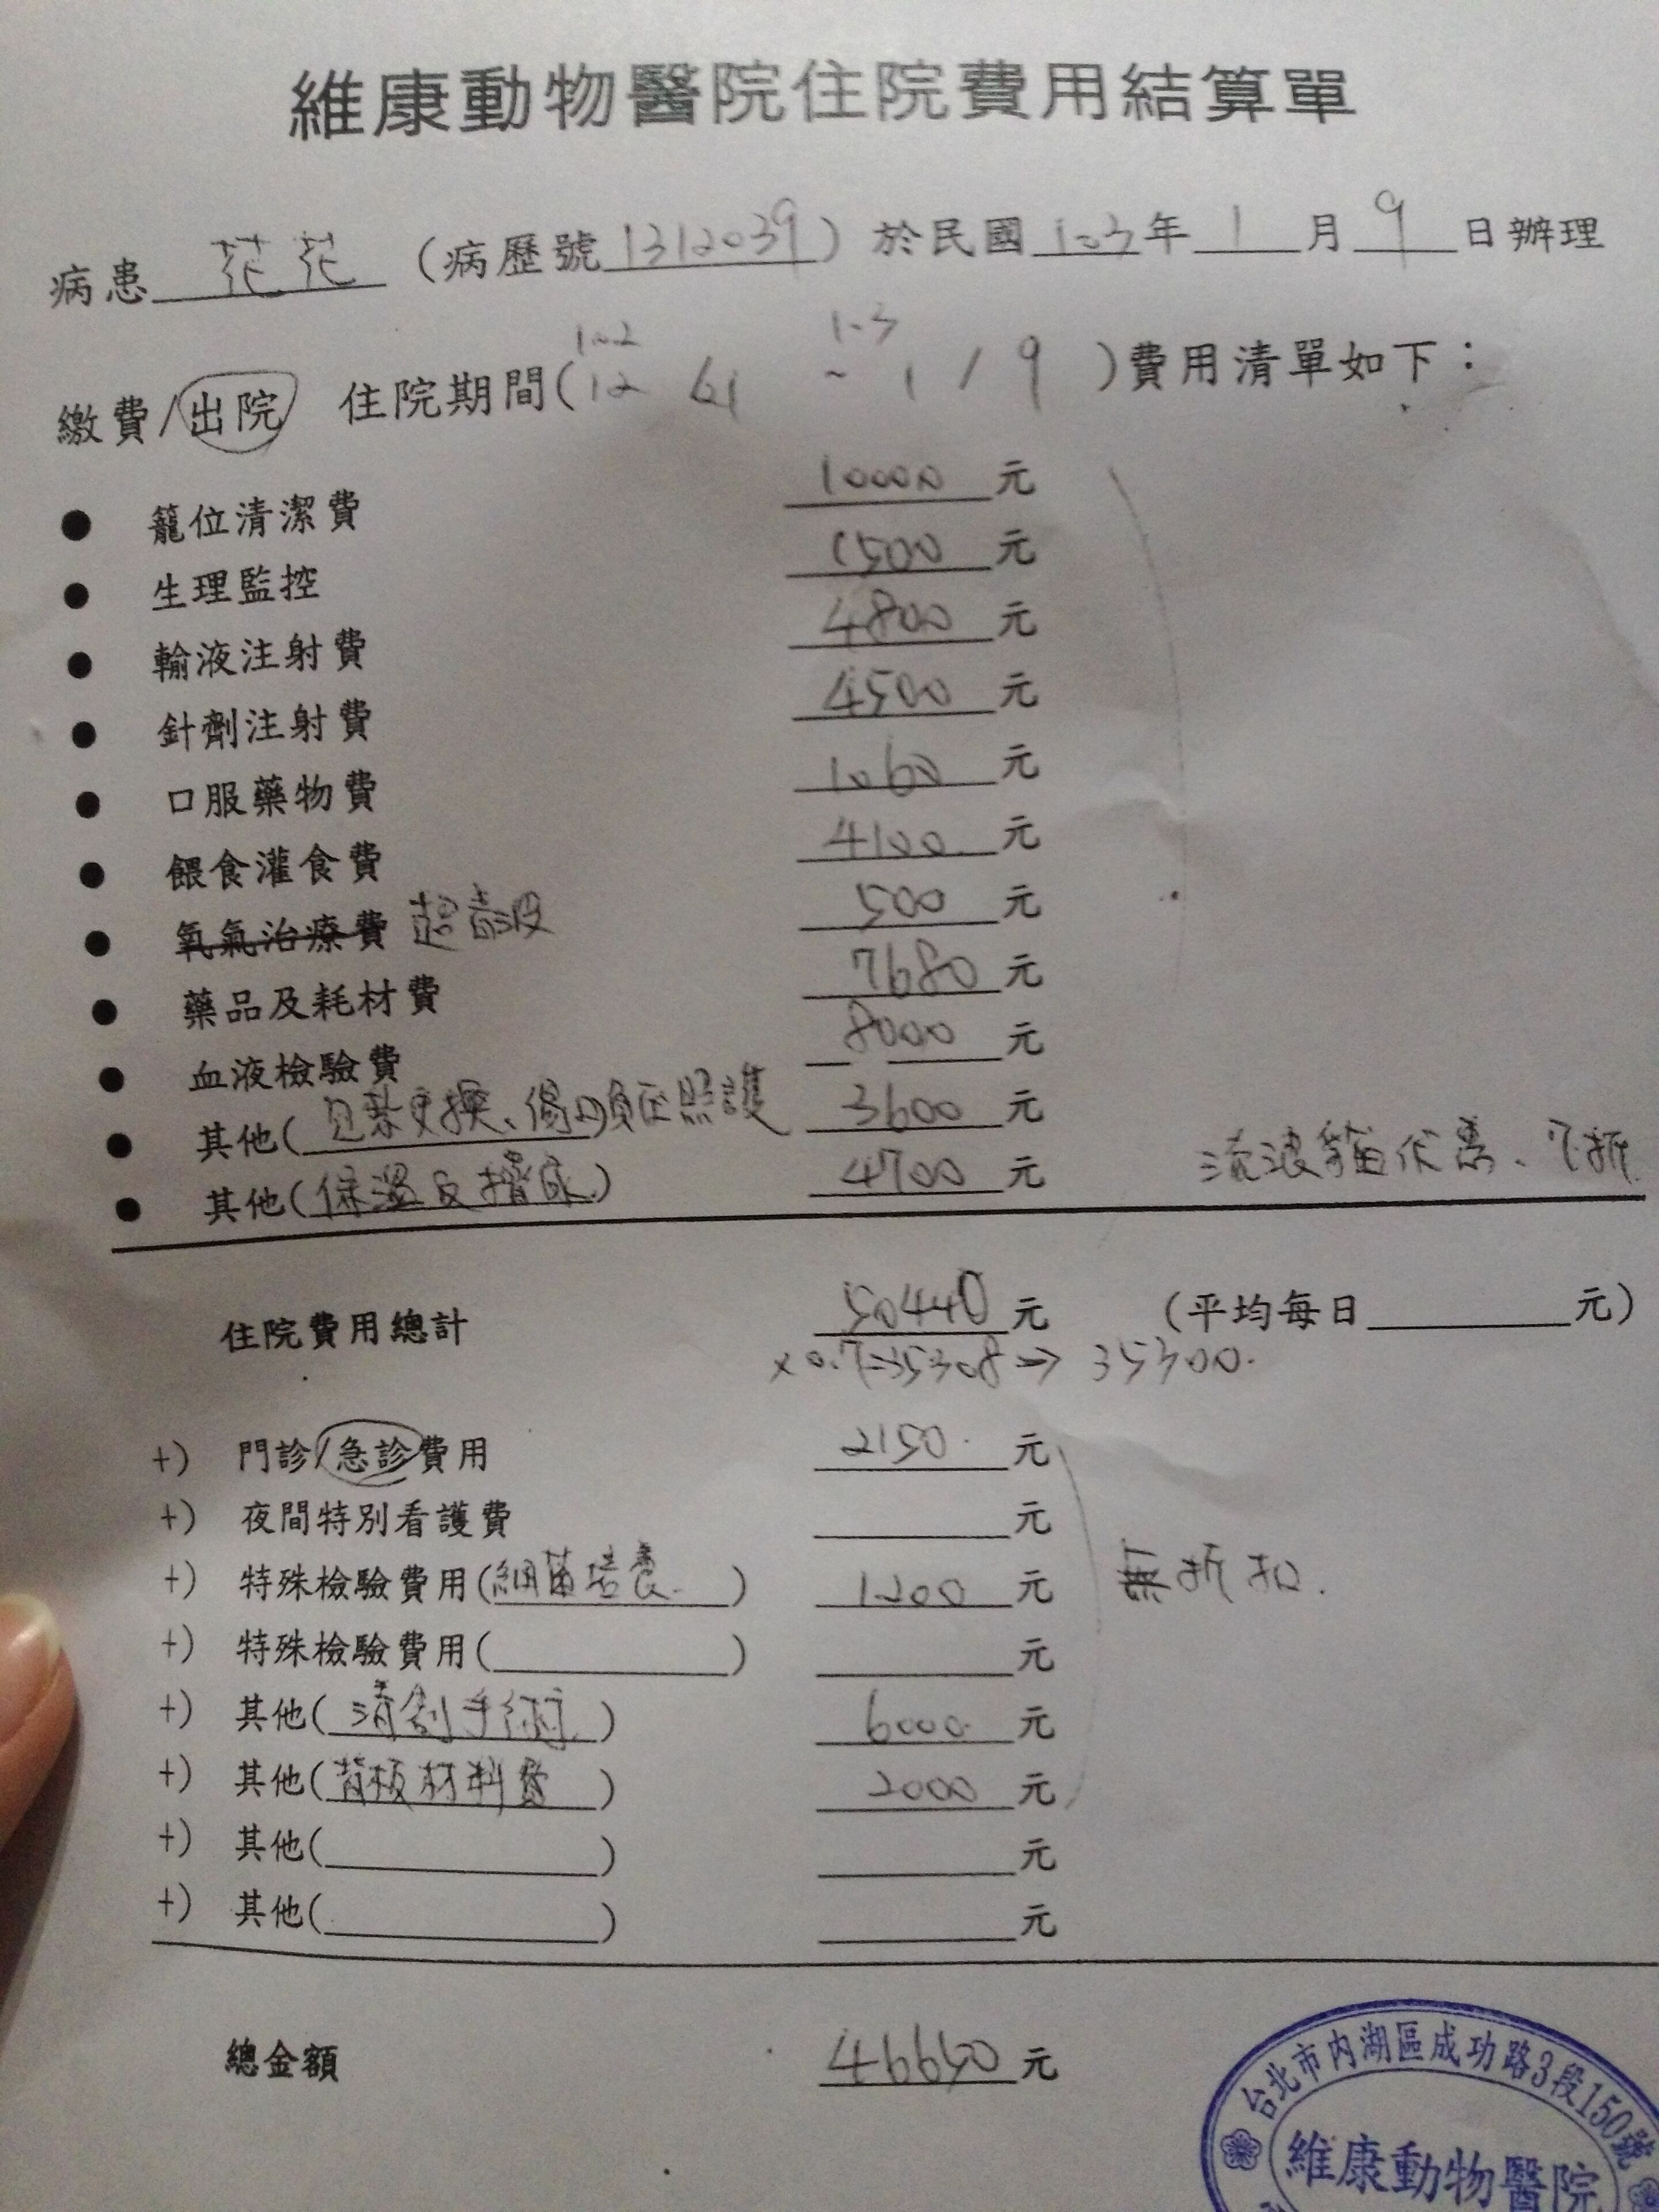 維康動物醫院住院費用結算單
病患 茫茫 (病歷號 1312039) 於民國 103 年 1 月 9 日辦理
102 103
繳費/出院 住院期間( 12 ~ 1 / 9 )費用清單如下：
● 籠位清潔費 10000 元
● 生理監控 1500 元
● 輸液注射費 4800 元
● 針劑注射費 4500 元
● 口服藥物費 1060 元
● 餵食灌食費 4100 元
● 氧氣治療費 超音波 500 元
● 藥品及耗材費 7680 元
● 血液檢驗費 8000 元
● 其他( 更換、傷口負压照護 3600 元
● 其他(保溫及擠尿) 4700 元 流浪貓優惠、7折
住院費用總計 50440 元 (平均每日 元)
x0.7=35308 => 35300.
+) 門診/急診費用 2150 元
+) 夜間特別看護費 元
+) 特殊檢驗費用(細菌培養) 1200 元 無折扣.
+) 特殊檢驗費用( ) 元
+) 其他(清創手術) 6000 元
+) 其他(背板材料費) 2000 元
+) 其他( ) 元
+) 其他( ) 元
總金額 46650 元
台北市內湖區成功路3段150號
維康動物醫院